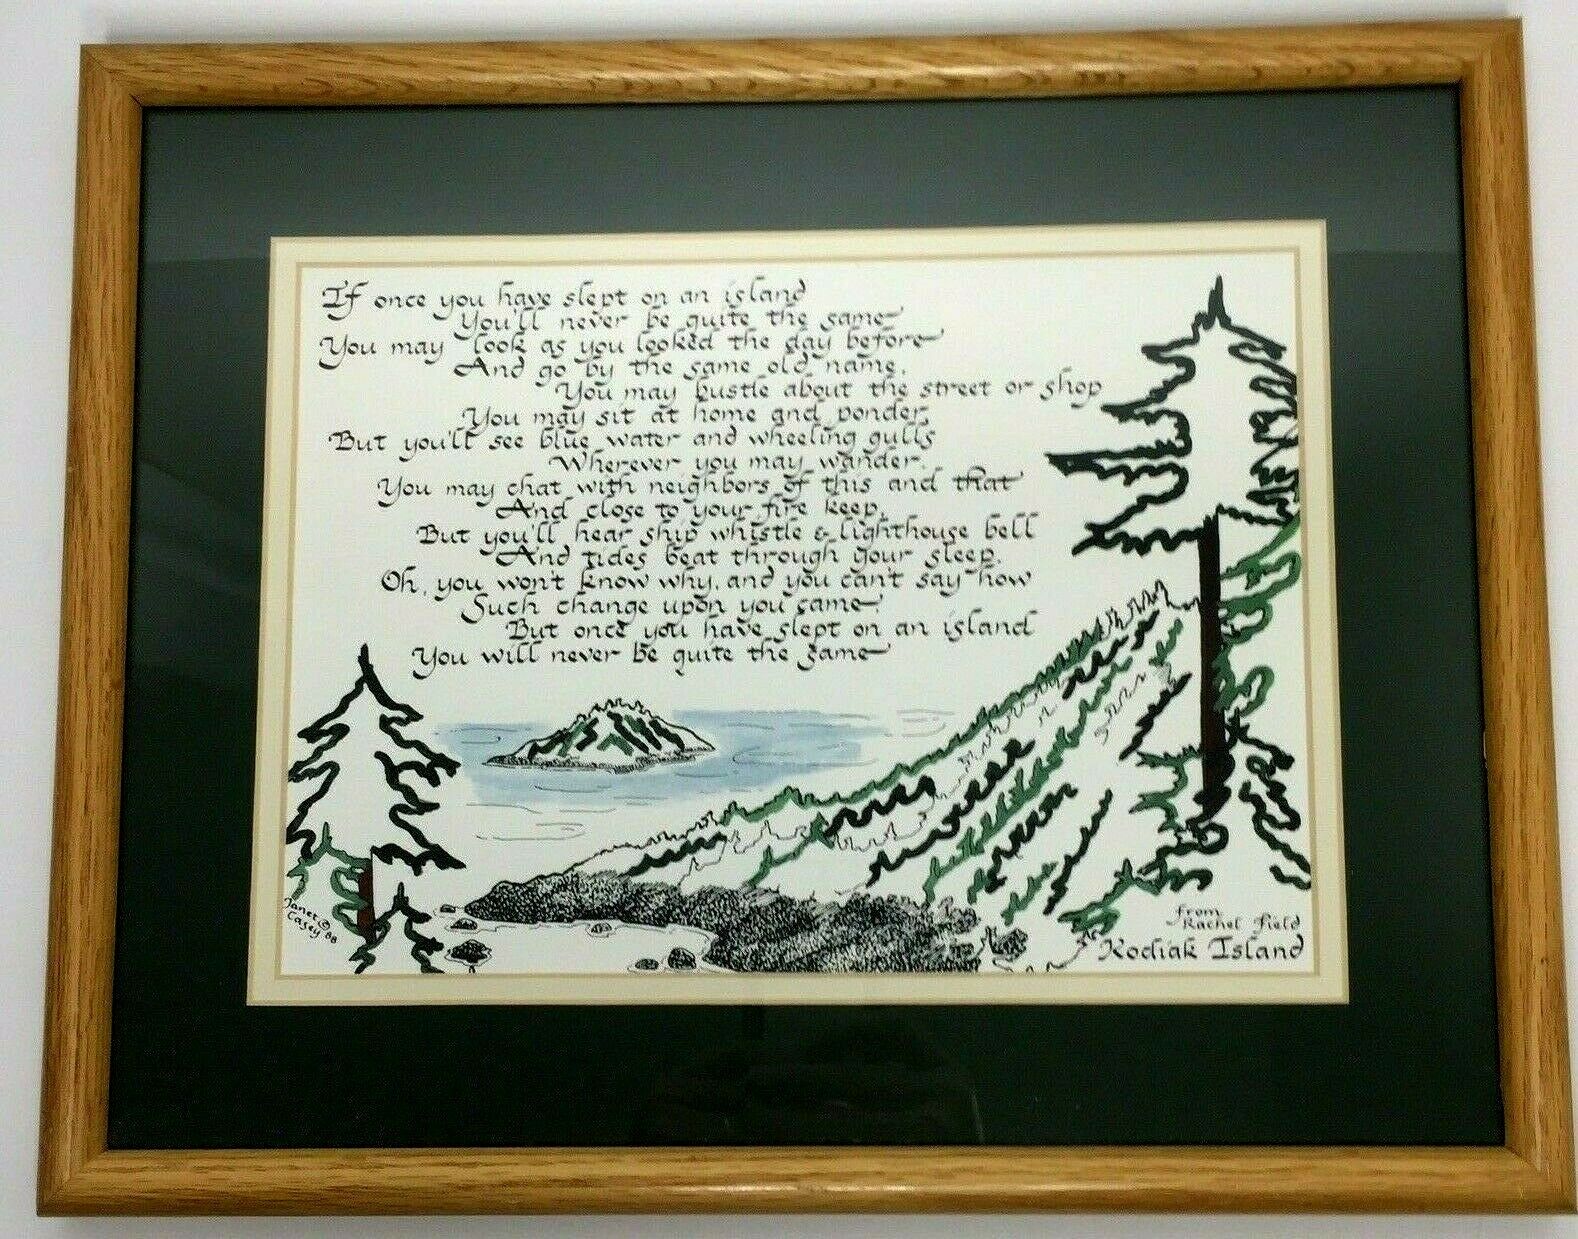 If once you have slept on an island
You'll never be quite the same
You may look as you looked the day before
And go by the same old name.
You may bustle about the street or shop
You may sit at home and ponder,
But you'll see blue water and wheeling gulls
Wherever you may wander.
You may chat with neighbors of this and that
And close to your fire keep,
But you'll hear ship whistle & lighthouse bell
And tides beat through your sleep.
Oh, you won't know why, and you can't say how
Such change upon you came
But once you have slept on an island
You will never be quite the same
Janet ©
Casey '88
from
Rachel Field
Kodiak Island